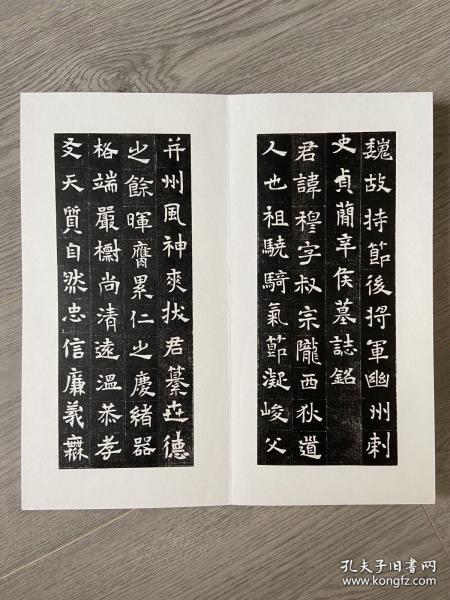 魏故持節後將軍幽州刺
史貞簡辛侯墓誌銘
君諱穆字叔宗隴西狄道
人也祖驍騎氣節凝峻父
并州風神爽拔君纂世德
之餘暉膺累仁之慶緒器
格端嚴櫛尚清遠溫恭孝
友天質自然忠信廉義無
孔夫子旧书网
www.kongfz.com